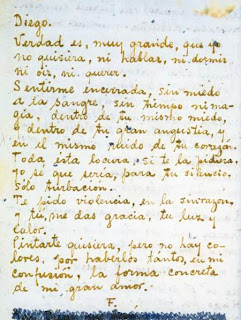 Diego.
Verdad es, muy grande, que yo
no quisiera, ni hablar, ni dormir
ni oir, ni querer.
Sentirme encerrada, sin miedo
a la sangre, sin tiempo ni ma-
gia, dentro de tu mismo miedo,
y dentro de tu gran angustia, y
en el mismo ruido de tu corazón.
Toda esta locura, si te la pidiera,
yo se que seria, para tu silencio,
sólo turbación.
Te pido violencia, en la sinrazón,
y tú, me das gracia, tu luz y
calor.
Pintarte quisiera, pero no hay co-
lores, por haberlos tantos, en mi
confusión, la forma concreta
de mi gran amor.
F.